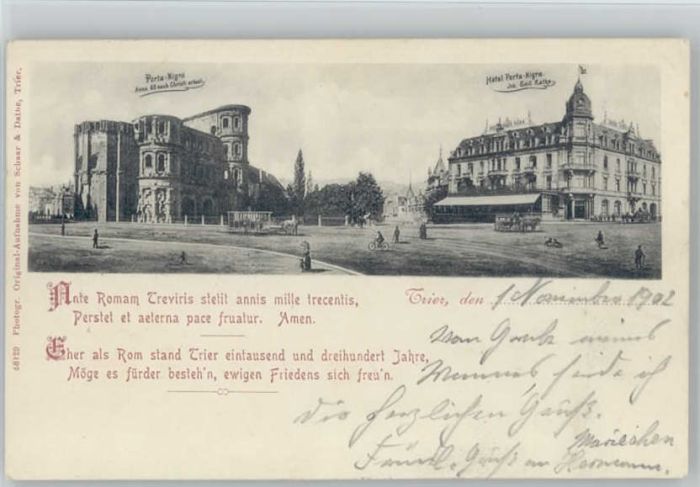 Porta-Nigra
Anno 48 nach Christi erbaut.
Hôtel Porta-Nigra.
48129 Photogr. Original-Aufnahme von Schaar & Dathe, Trier.
Ante Romam Treviris stetit annis mille trecentis,
Perstet et aeterna pace fruatur. Amen.
Eher als Rom stand Trier eintausend und dreihundert Jahre,
Möge es fürder besteh'n, ewigen Friedens sich freu'n.
Trier, den 1 November 1902
Vom Grabe meines
Mannes sende ich
die herzlichen Grüße.
Mariechen
Grüße an Hermann.